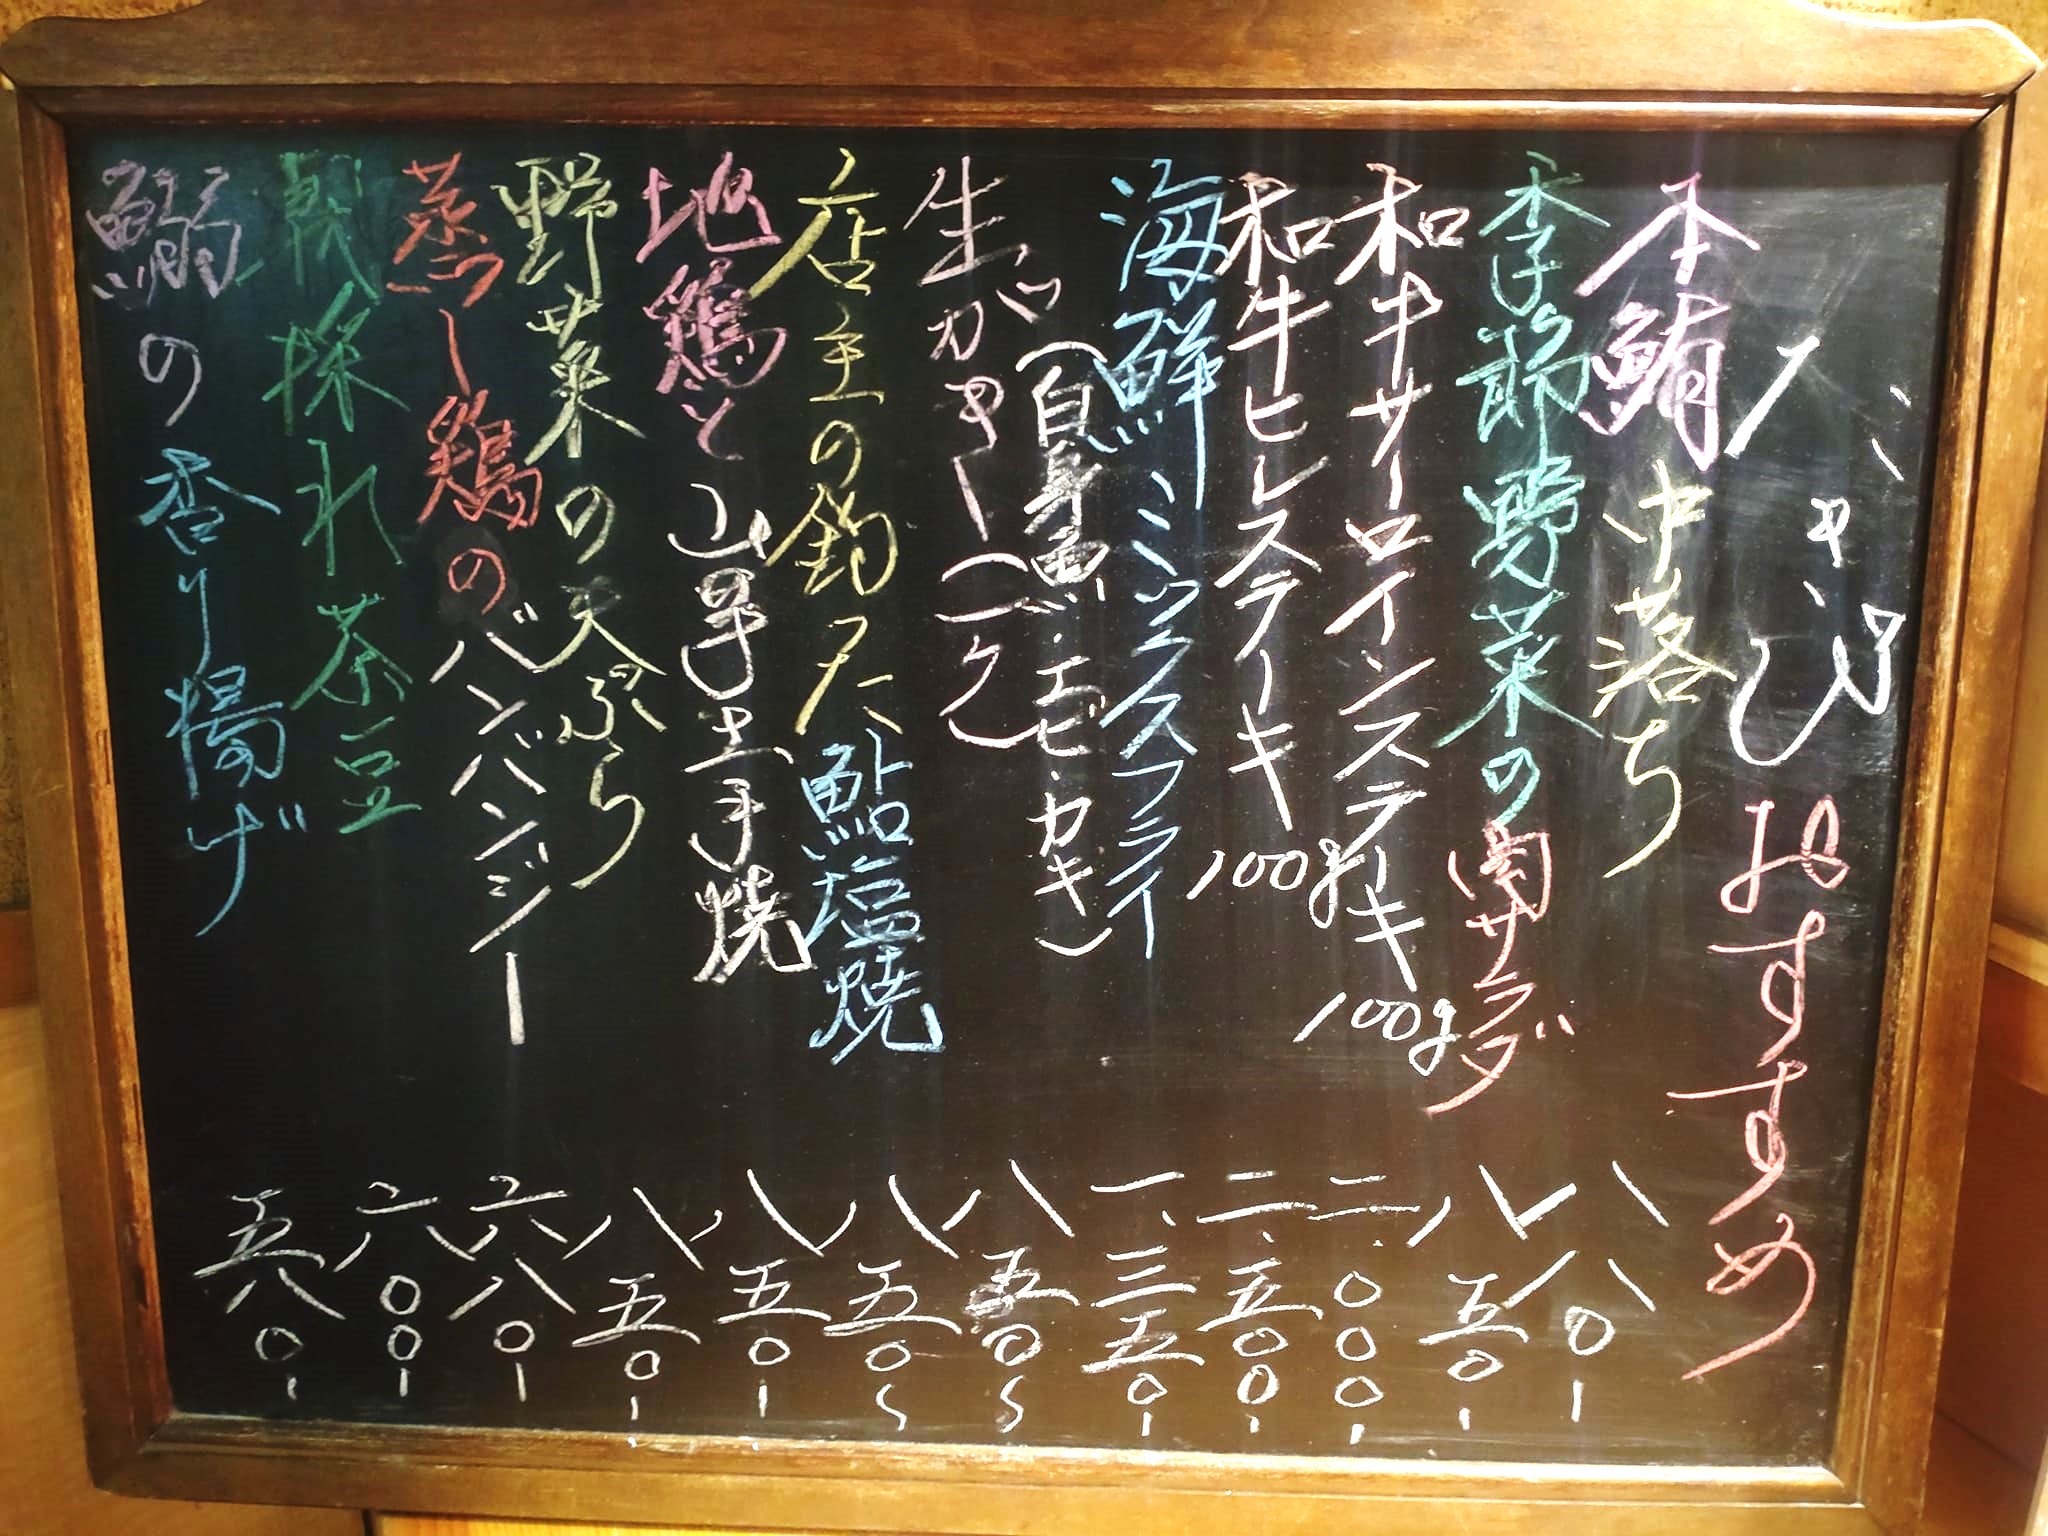 おすすめ
本鮪 中落ち 八八〇-
季節野菜の肉サラダ 八五〇-
和牛サーロインステーキ 100g 二.〇〇〇-
和牛ヒレステーキ 100g 二.五〇〇-
海鮮ミックスフライ 一.三五〇-
(白身魚・エビ・カキ)
生がきー(一ケ) 八五〇〜
店主の釣った 鮎塩焼 八五〇〜
地鶏と山芋土手焼 八五〇-
野菜の天ぷら 八五〇-
蒸し鶏のバンバンジー 六八〇-
採れ茶豆 六〇〇-
鰯の香り揚げ 五八〇-